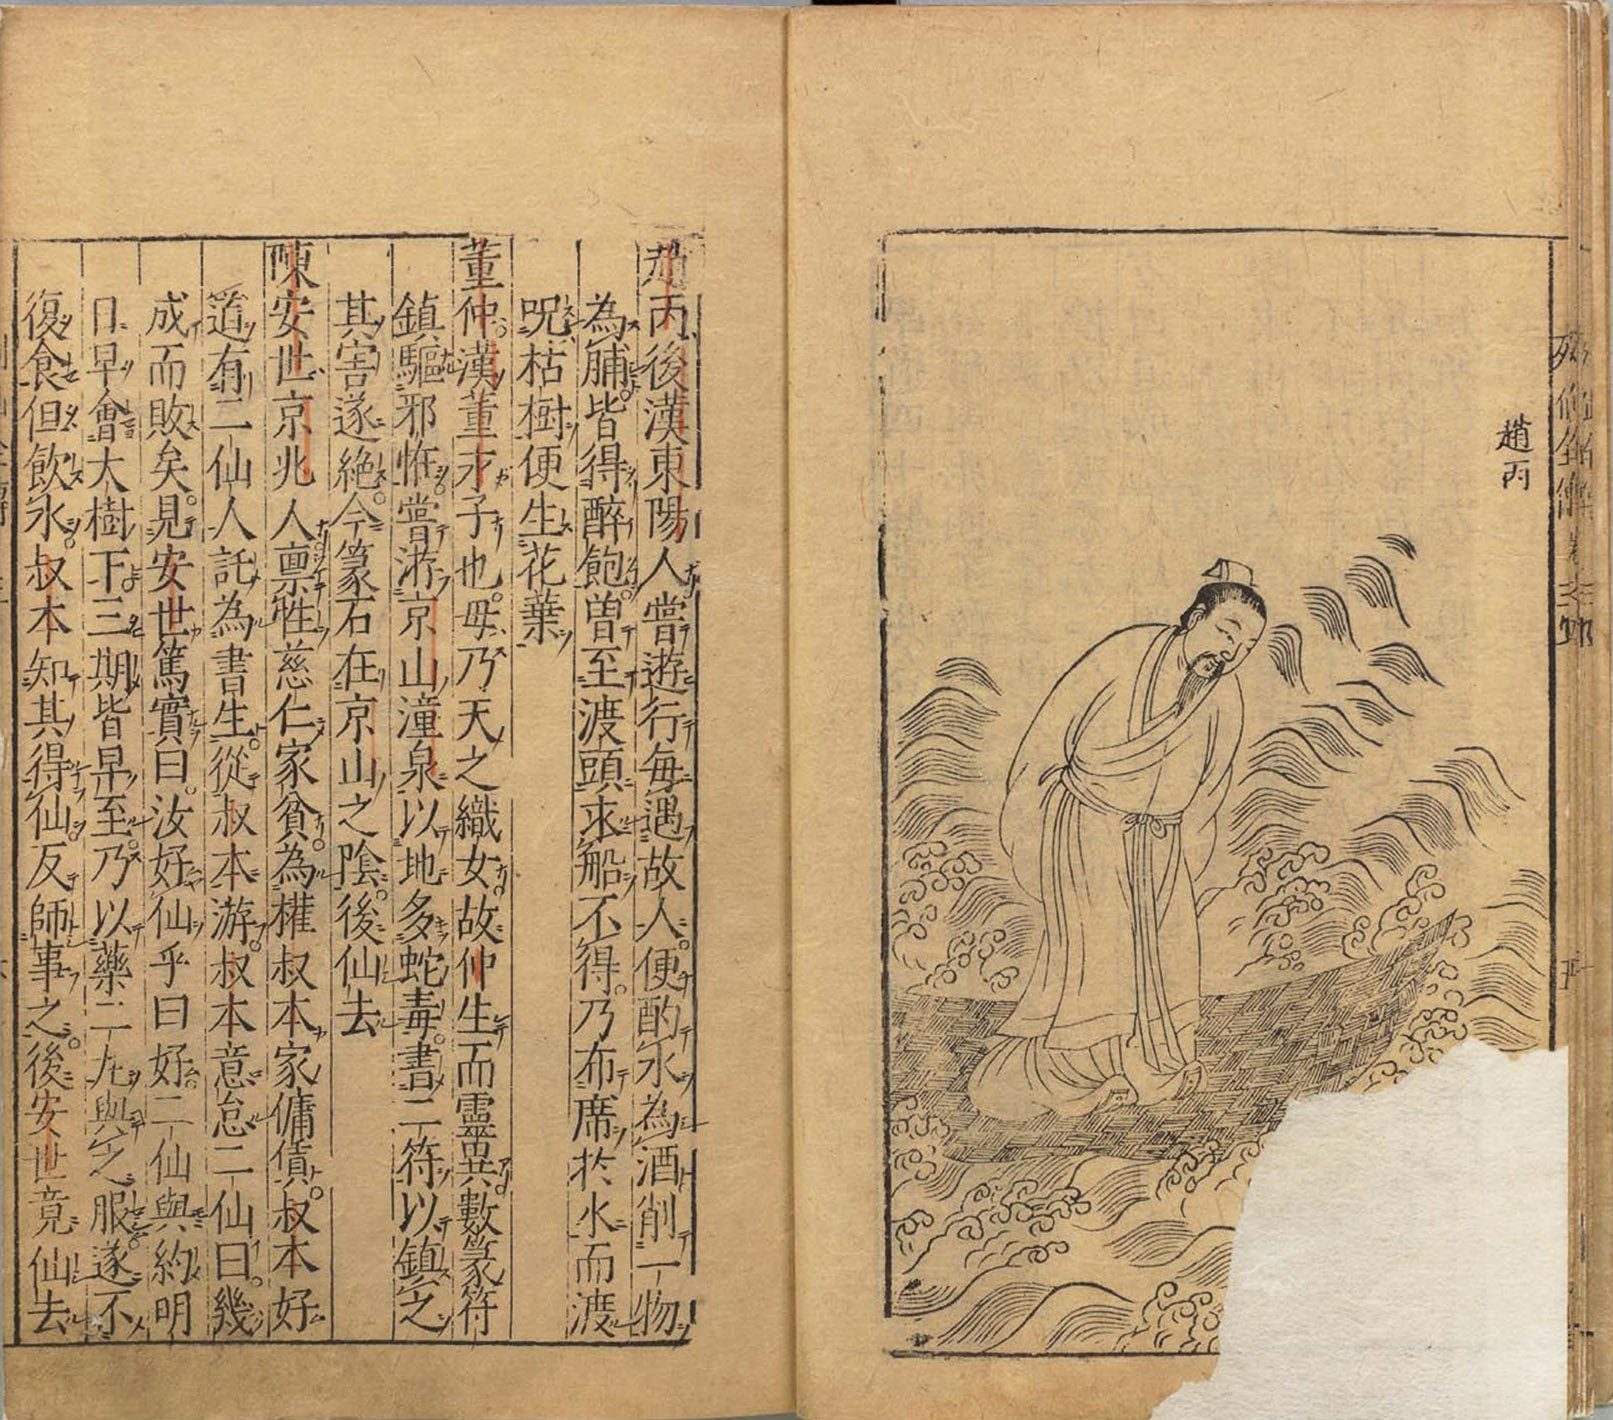 趙丙
趙丙後漢東陽人嘗遊行每遇故人便酌水為酒削一物
為脯皆得醉飽曽至渡頭求船不得乃布席於水而渡
呪枯樹便生花葉
董仲漢董才子也母乃天之織女故仲生而靈異數篆符
鎮驅邪恠嘗游京山潼泉以地多蛇毒書二符以鎮之
其害遂絕今篆石在京山之陰後仙去
陳安世京兆人禀性慈仁家貧為權叔本家傭賃叔本好
道有二仙人託為書生從叔本游叔本意怠二仙曰幾
成而敗矣見安世篤實曰汝好仙乎曰好二仙與約明
日早會大樹下三期皆早至乃以藥二丸與之服遂不
復食但飲水叔本知其得仙反師事之後安世竟仙去